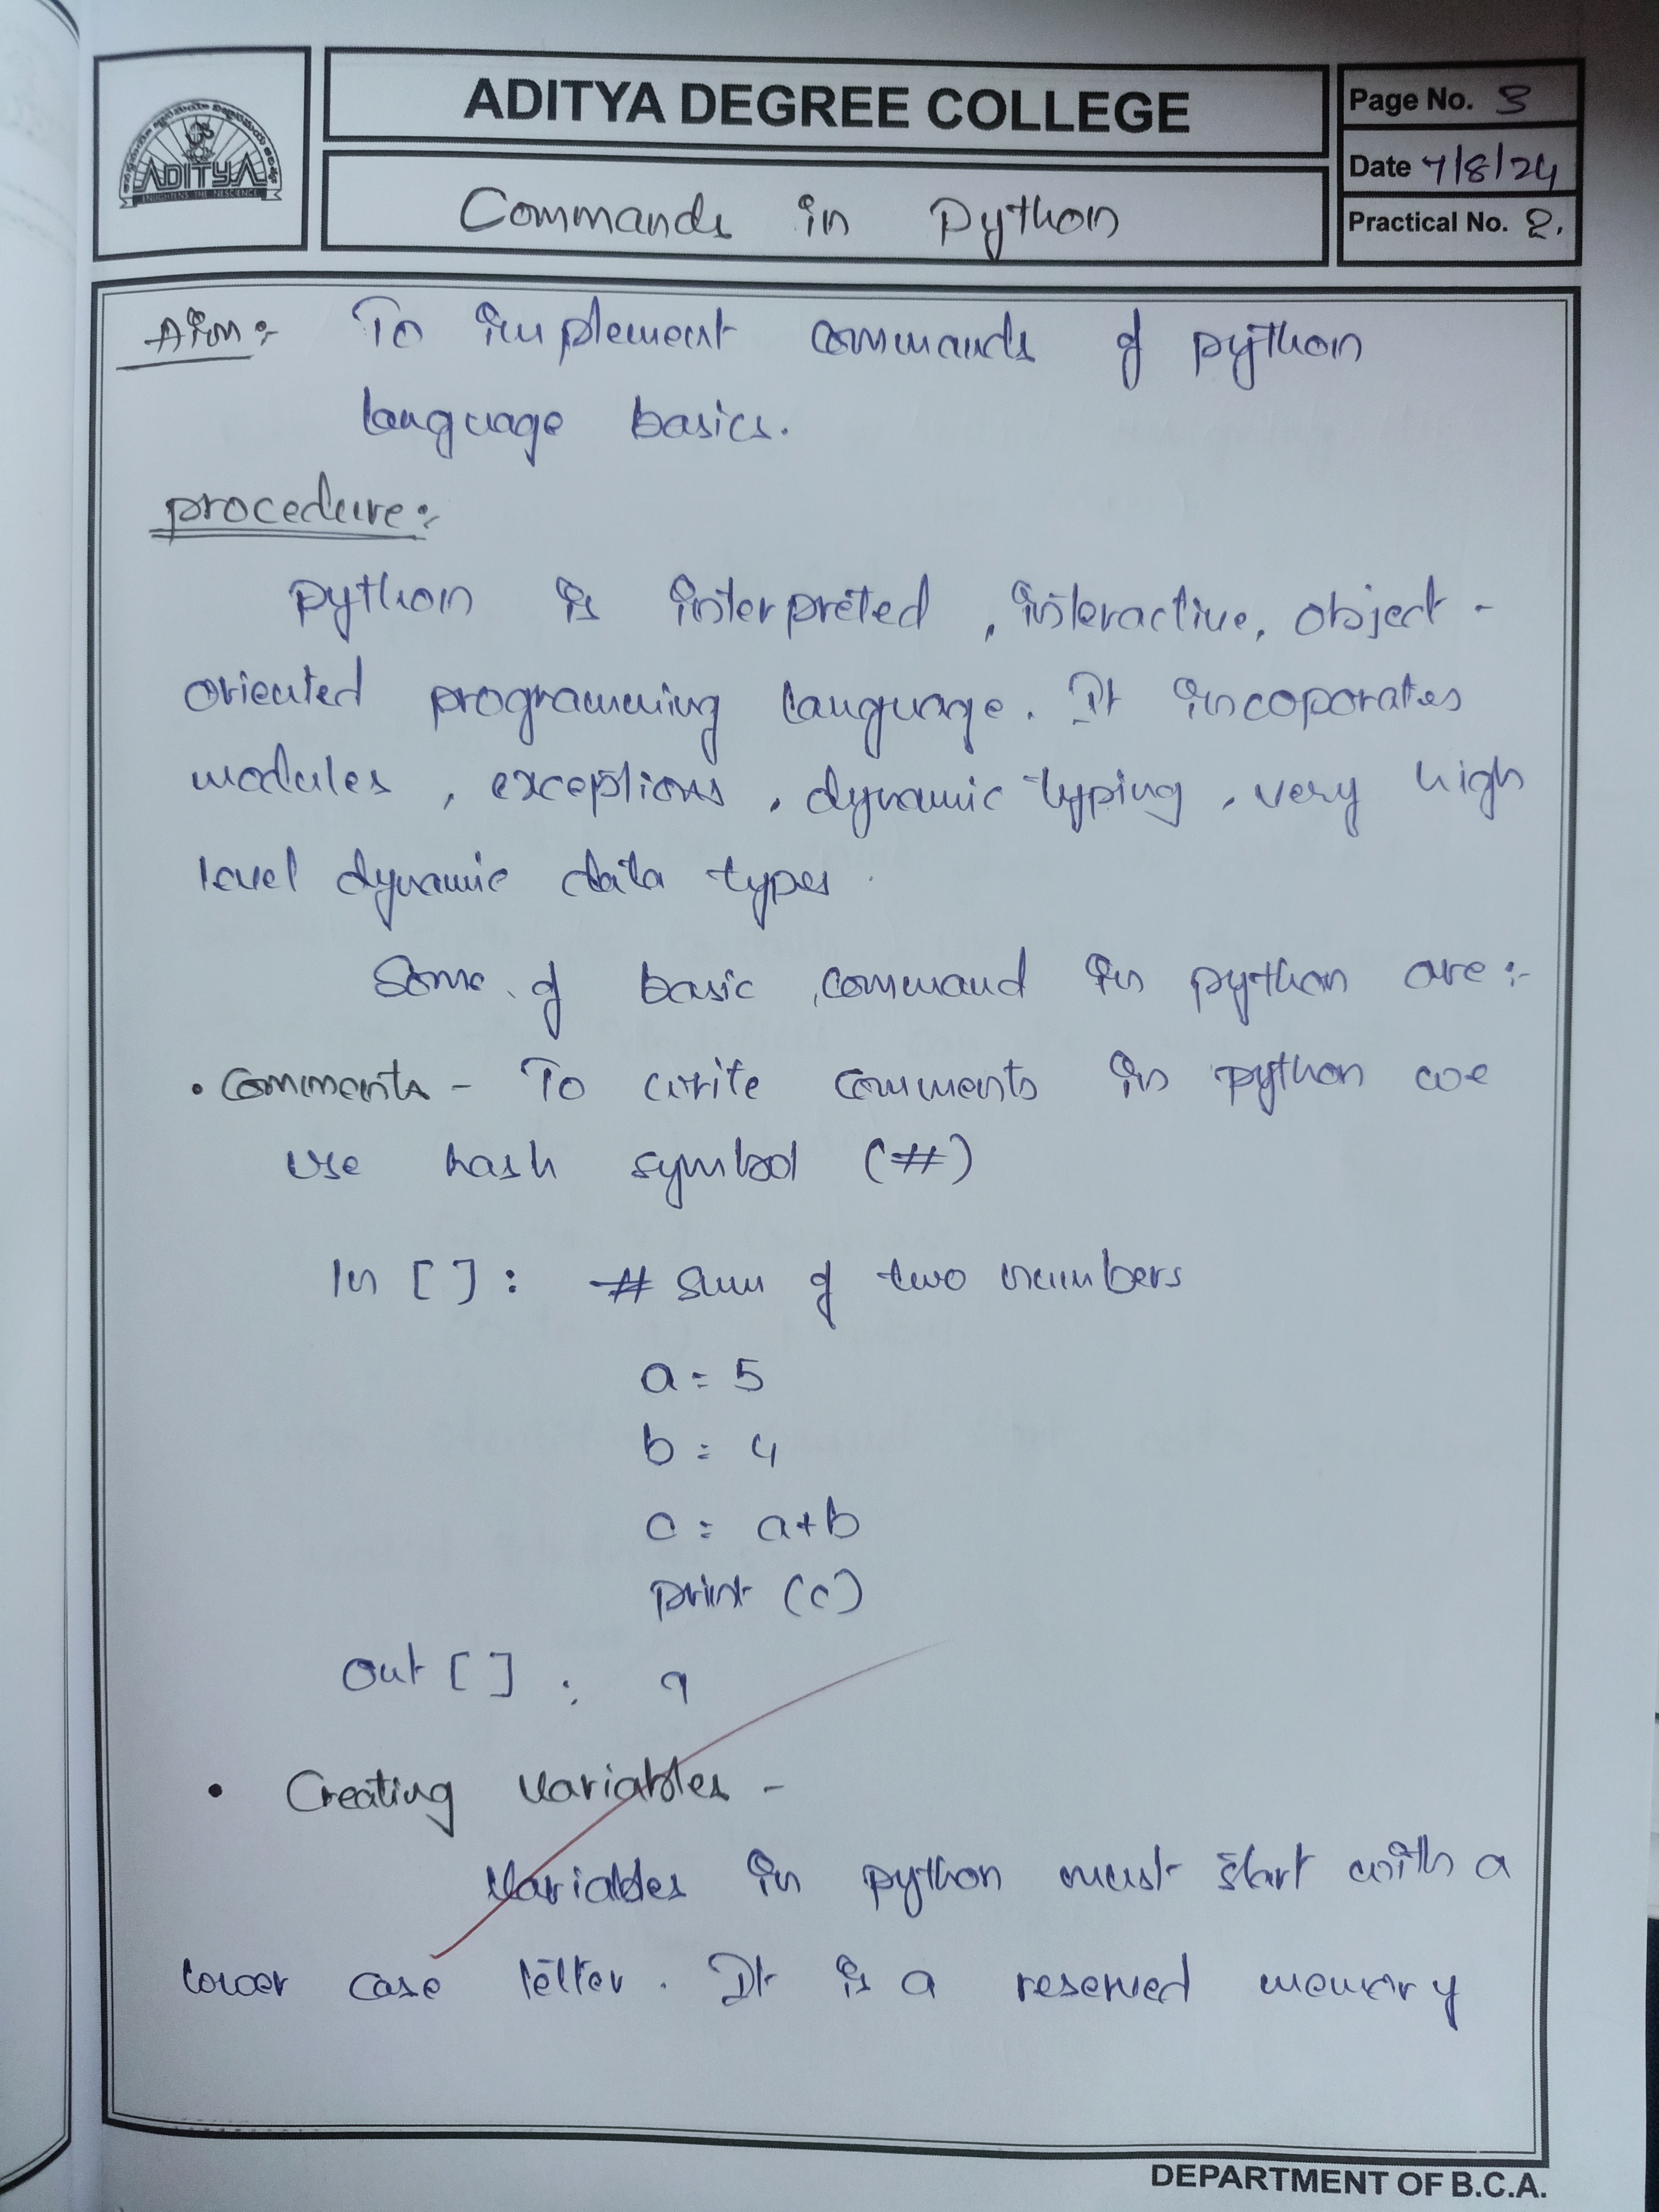 ADITYA DEGREE COLLEGE
Page No. 3
Date 7/8/24
Practical No. 2.
ADITYA
Commands in Python
Aim:- To implement commands of python
language basics.
procedure:-
python is interpreted, interactive, object-
oriented programming language. It incoporates
modules, exceptions, dynamic typing, very high
level dynamic data types.
Some of basic command in python are:-
• Comments - To write comments in python we
use hash symbol (#)
In [ ] : # sum of two numbers
a = 5
b = 4
c = a+b
print (c)
Out [ ] : 9
• Creating variables -
Variables in python must start with a
lower case letter. It is a reserved memory
DEPARTMENT OF B.C.A.